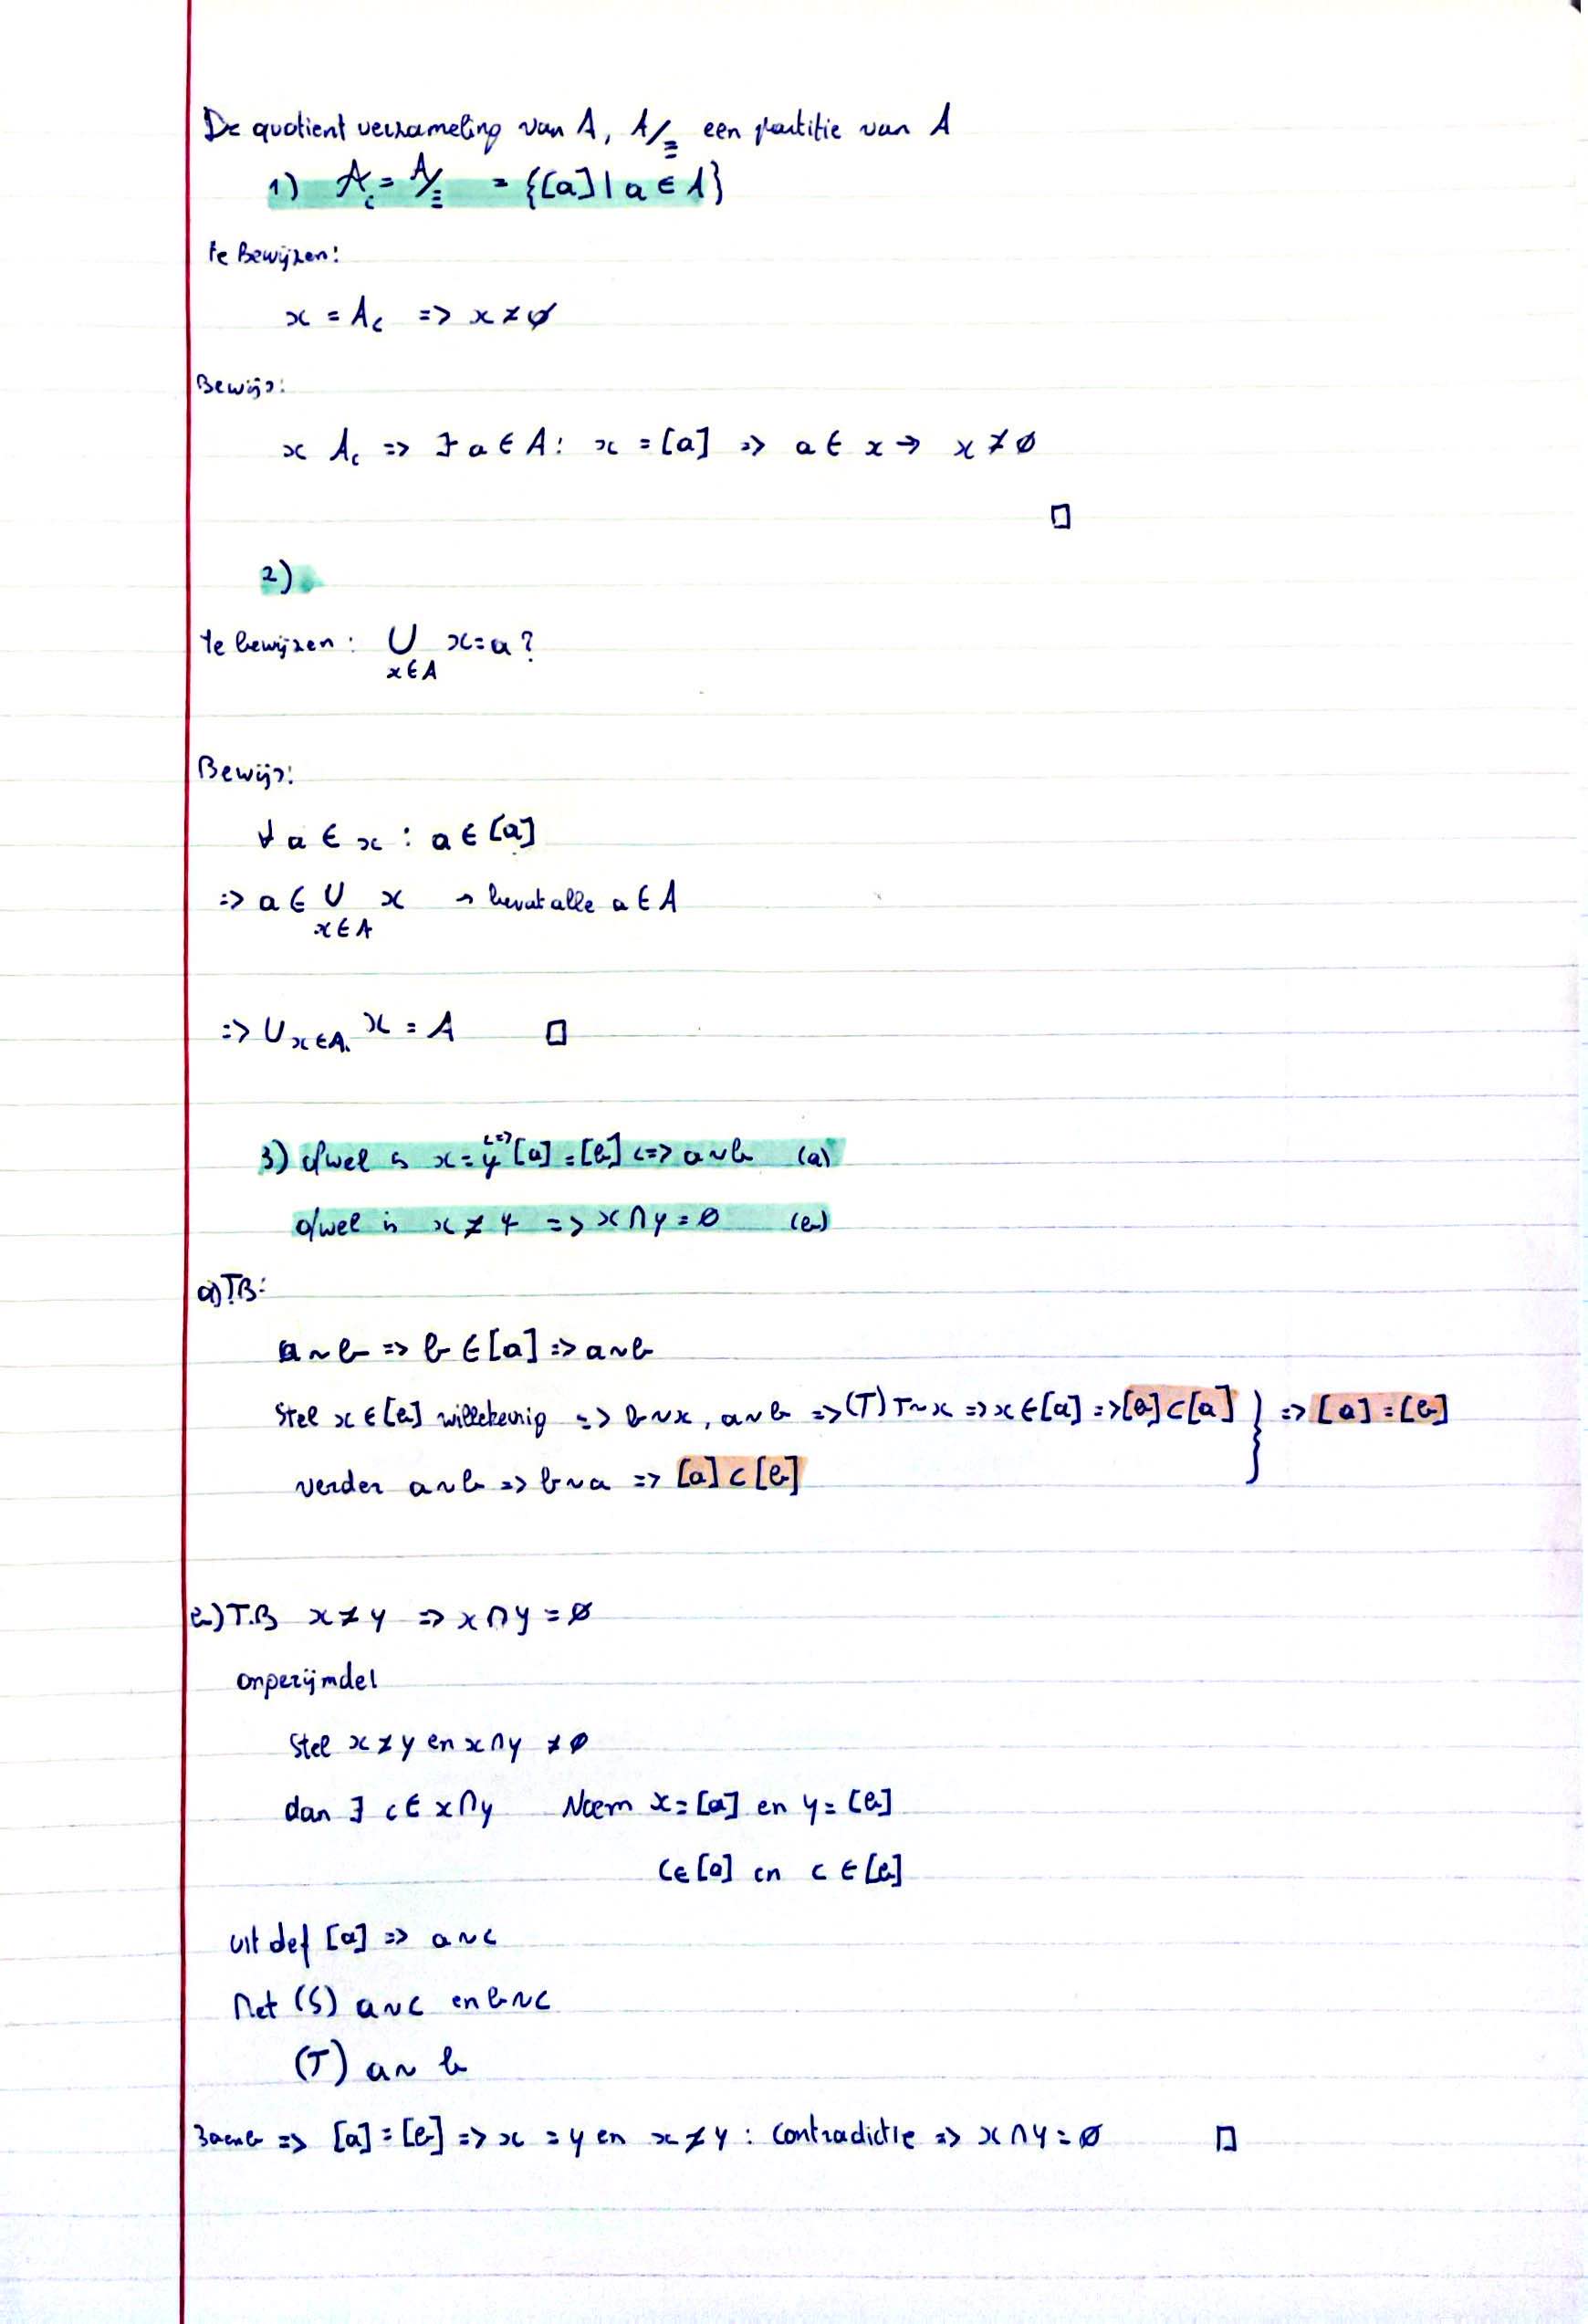 De quotient verzameling van A, A/≡ een partitie van A
1) A_c = A/≡ = {[a] | a ∈ A}
te Bewijzen:
x = A_c => x ≠ ∅
Bewijs:
x A_c => ∃ a ∈ A : x = [a] => a ∈ x → x ≠ ∅
□
2)
te bewijzen : ∪ x = a ?
x ∈ A
Bewijs:
∀ a ∈ x : a ∈ [a]
=> a ∈ ∪ x → bevat alle a ∈ A
x ∈ A
=> ∪ x ∈ A. x = A □
3) ofwel is x = y <=> [a] = [b] <=> a ~ b (a)
ofwel is x ≠ y => x ∩ y = ∅ (b)
a) TB:
a ~ b => b ∈ [a] => a ~ b
Stel x ∈ [b] willekeurig => b ~ x, a ~ b => (T) T ~ x => x ∈ [a] => [b] ⊂ [a] } => [a] = [b]
verder a ~ b => b ~ a => [a] ⊂ [b]
b) T.B x ≠ y => x ∩ y = ∅
ongerijmde
Stel x ≠ y en x ∩ y ≠ ∅
dan ∃ c ∈ x ∩ y Noem x = [a] en y = [b]
c ∈ [a] en c ∈ [b]
uit def [a] => a ~ c
Met (S) a ~ c en b ~ c
(T) a ~ b
=> [a] = [b] => x = y en x ≠ y : contradictie => x ∩ y = ∅ □